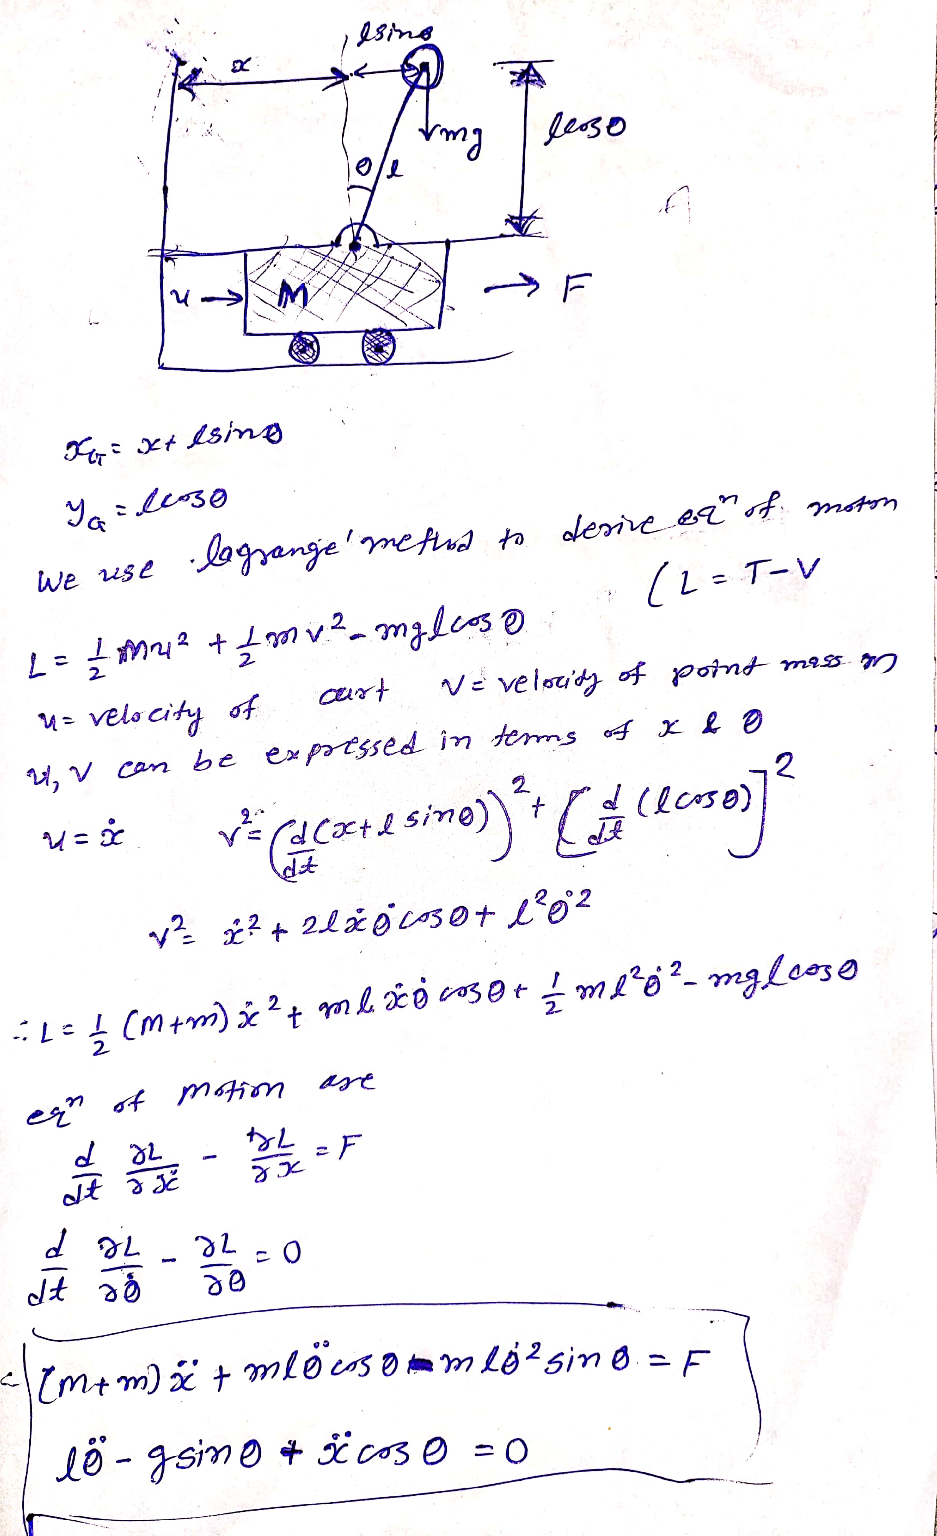 lsinθ
x
mg
lcosθ
θ l
u → M → F
x_G = x + lsinθ
y_G = lcosθ
We use lagrange' method to derive eqⁿ of moton
(L = T - V
L = 1/2 Mu² + 1/2 mv² - mglcosθ
u = velocity of cart v = velocity of point mass m
u, v can be expressed in terms of x & θ
u = ẋ v² = (d/dt (x + l sinθ))² + [d/dt (lcosθ)]²
v² = ẋ² + 2lẋθ̇cosθ + l²θ̇²
∴ L = 1/2 (M+m)ẋ² + mlẋθ̇cosθ + 1/2 ml²θ̇² - mglcosθ
eqⁿ of motion are
d/dt ∂L/∂ẋ - ∂L/∂x = F
d/dt ∂L/∂θ̇ - ∂L/∂θ = 0
(M+m)ẍ + mlθ̈cosθ - mlθ̇²sinθ = F
lθ̈ - gsinθ + ẍcosθ = 0